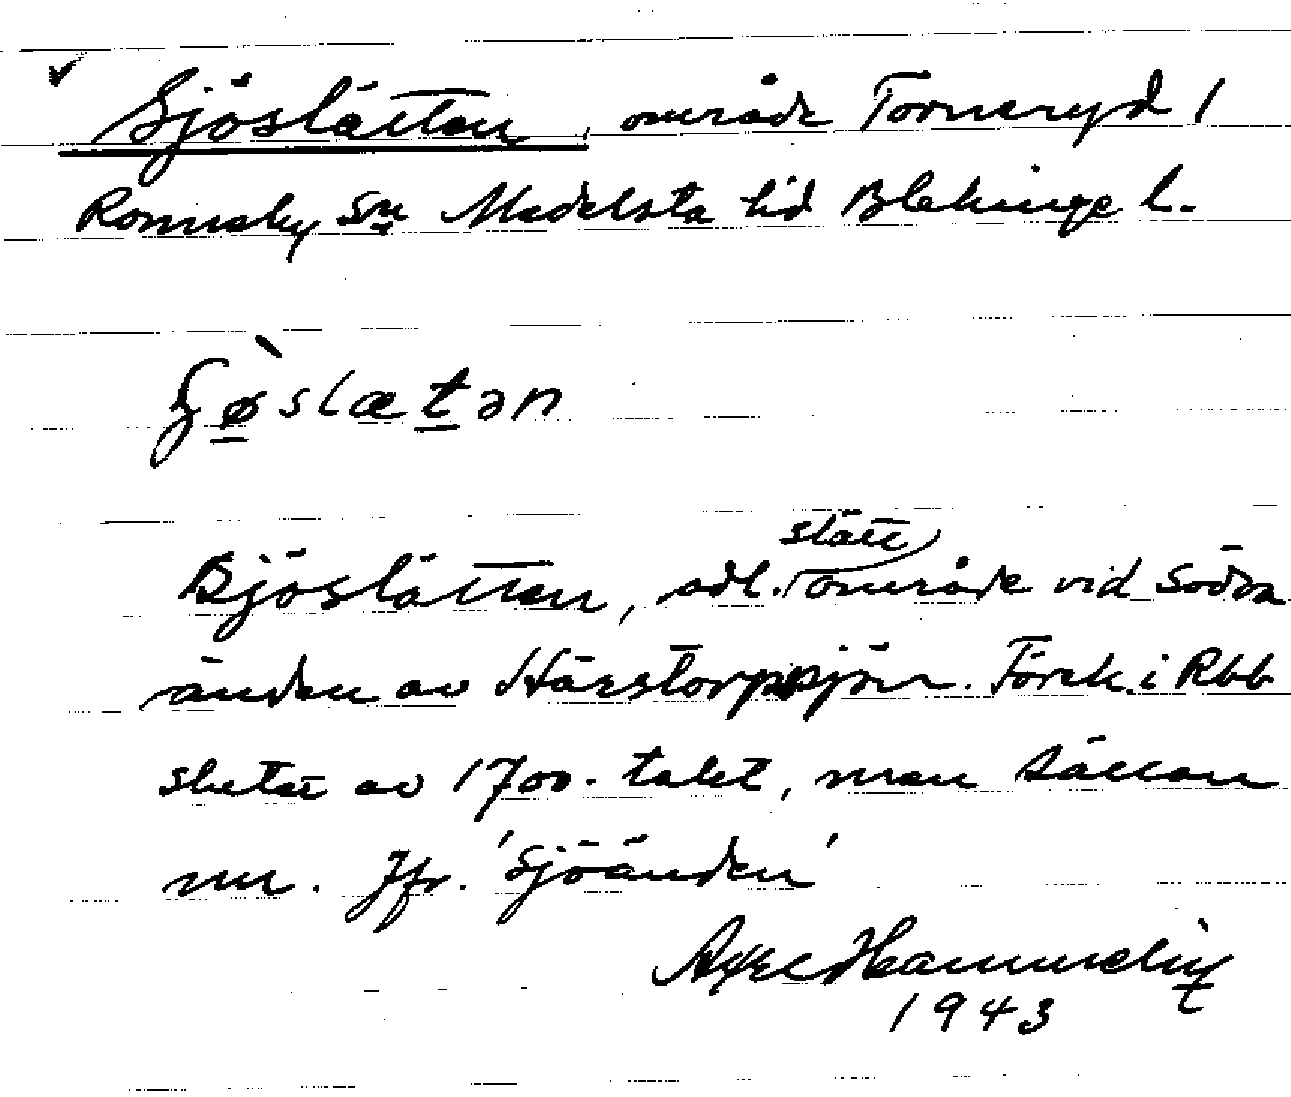 Sjöslätten, område Torneryd 1
Ronneby sn Medelsta hd Blekinge l.
slätt
Sjöslätten, odl. område vid Södra
änden av Härstorpssjön. Förek. i Rbb
slutet av 1700-talet, men sällan
nu. Jfr. 'Sjöänden'
Axel
1943